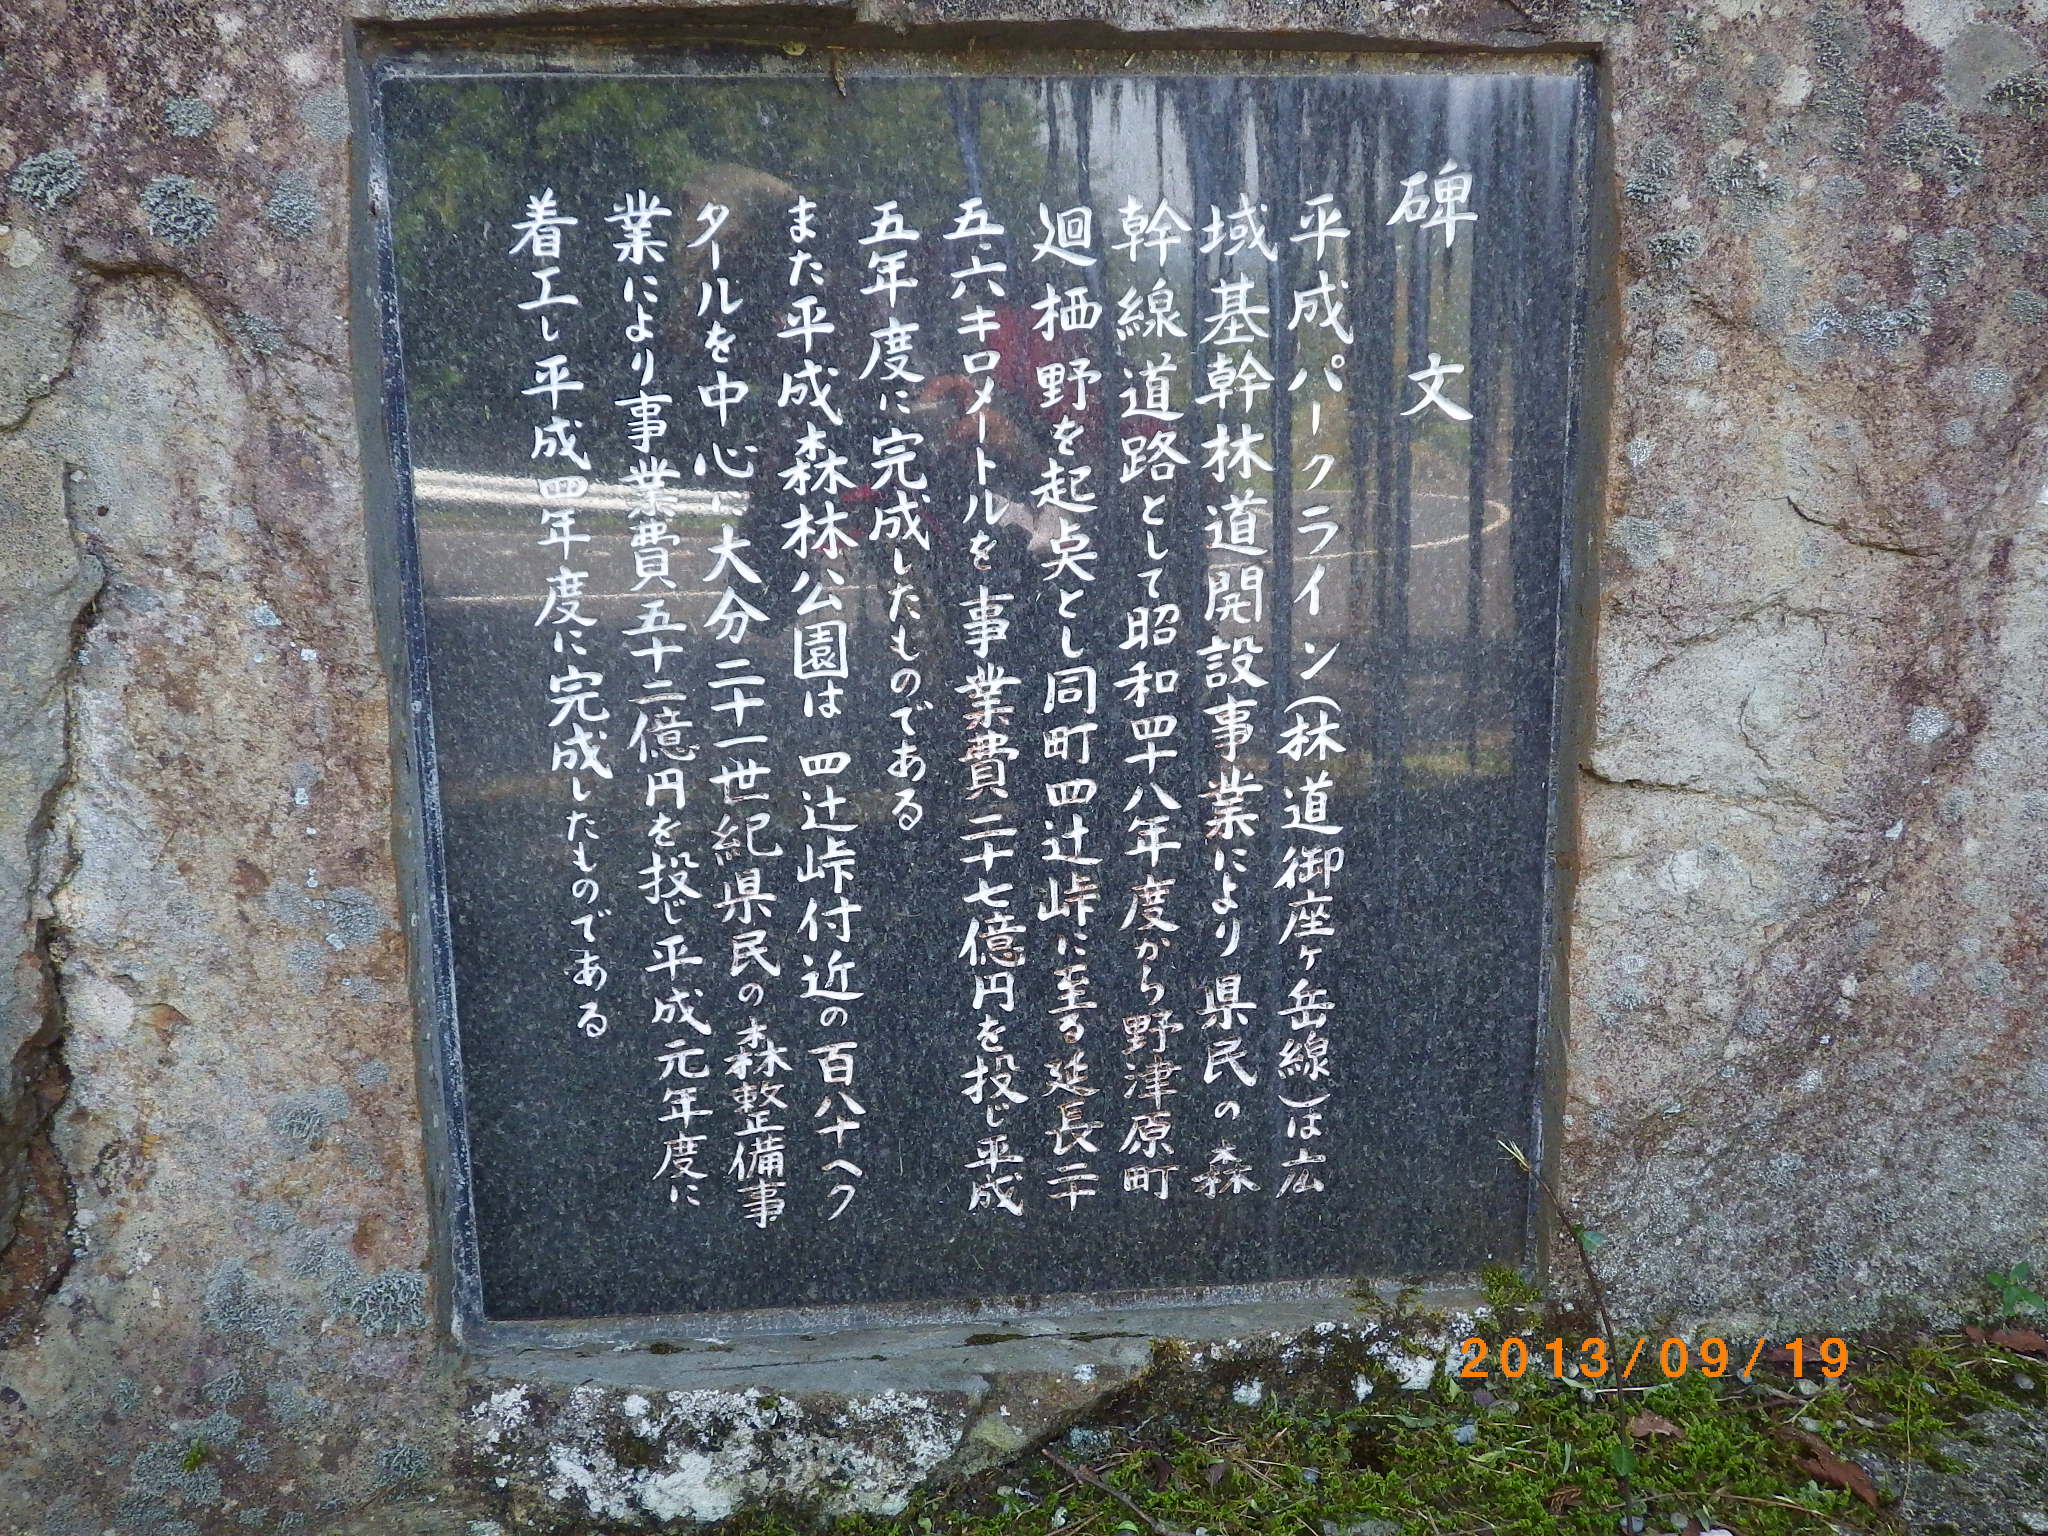 碑文
平成パークライン(林道御座ヶ岳線)は広
域基幹林道開設事業により県民の森
幹線道路として昭和四十八年度から野津原町
廻栖野を起点とし同町四辻峠に至る延長二十
五.六キロメートルを事業費二十七億円を投じ平成
五年度に完成したものである
また平成森林公園は四辻峠付近の百八十ヘク
タールを中心に大分二十一世紀県民の森整備事
業により事業費五十二億円を投じ平成元年度に
着工し平成四年度に完成したものである
2013/09/19